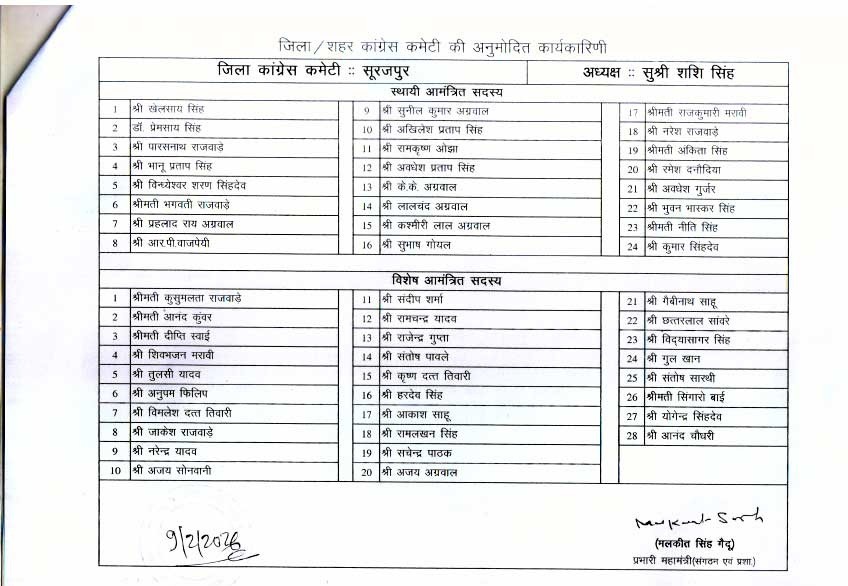 जिला/शहर कांग्रेस कमेटी की अनुमोदित कार्यकारिणी
जिला कांग्रेस कमेटी :: सूरजपुर अध्यक्ष :: सुश्री शशि सिंह
स्थायी आमंत्रित सदस्य
1 श्री खेलसाय सिंह 9 श्री सुनील कुमार अग्रवाल 17 श्रीमती राजकुमारी मरावी
2 डॉ. प्रेमसाय सिंह 10 श्री अखिलेश प्रताप सिंह 18 श्री नरेश राजवाड़े
3 श्री पारसनाथ राजवाड़े 11 श्री रामकृष्ण ओझा 19 श्रीमती अंकिता सिंह
4 श्री भानू प्रताप सिंह 12 श्री अवधेश प्रताप सिंह 20 श्री रमेश दनौदिया
5 श्री विन्ध्येश्वर शरण सिंहदेव 13 श्री के.के. अग्रवाल 21 श्री अवधेश गुर्जर
6 श्रीमती भगवती राजवाड़े 14 श्री लालचंद अग्रवाल 22 श्री भुवन भास्कर सिंह
7 श्री प्रहलाद राय अग्रवाल 15 श्री कश्मीरी लाल अग्रवाल 23 श्रीमती नीति सिंह
8 श्री आर.पी.वाजपेयी 16 श्री सुभाष गोयल 24 श्री कुमार सिंहदेव
विशेष आमंत्रित सदस्य
1 श्रीमती कुसुमलता राजवाड़े 11 श्री संदीप शर्मा 21 श्री गैबीनाथ साहू
2 श्रीमती आनंद कुंवर 12 श्री रामचन्द्र यादव 22 श्री छत्तरलाल सांवरे
3 श्रीमती दीप्ति स्वाई 13 श्री राजेन्द्र गुप्ता 23 श्री विद्यासागर सिंह
4 श्री शिवभजन मरावी 14 श्री संतोष पावले 24 श्री गुल खान
5 श्री तुलसी यादव 15 श्री कृष्ण दत्त तिवारी 25 श्री संतोष सारथी
6 श्री अनुपम फिलिप 16 श्री हरदेव सिंह 26 श्रीमती सिंगारो बाई
7 श्री विमलेश दत्त तिवारी 17 श्री आकाश साहू 27 श्री योगेन्द्र सिंहदेव
8 श्री जाकेश राजवाड़े 18 श्री रामलखन सिंह 28 श्री आनंद चौधरी
9 श्री नरेन्द्र यादव 19 श्री सचेन्द्र पाठक
10 श्री अजय सोनवानी 20 श्री अजय अग्रवाल
9/2/2026
(मलकीत सिंह गैदू)
प्रभारी महामंत्री(संगठन एवं प्रशा.)